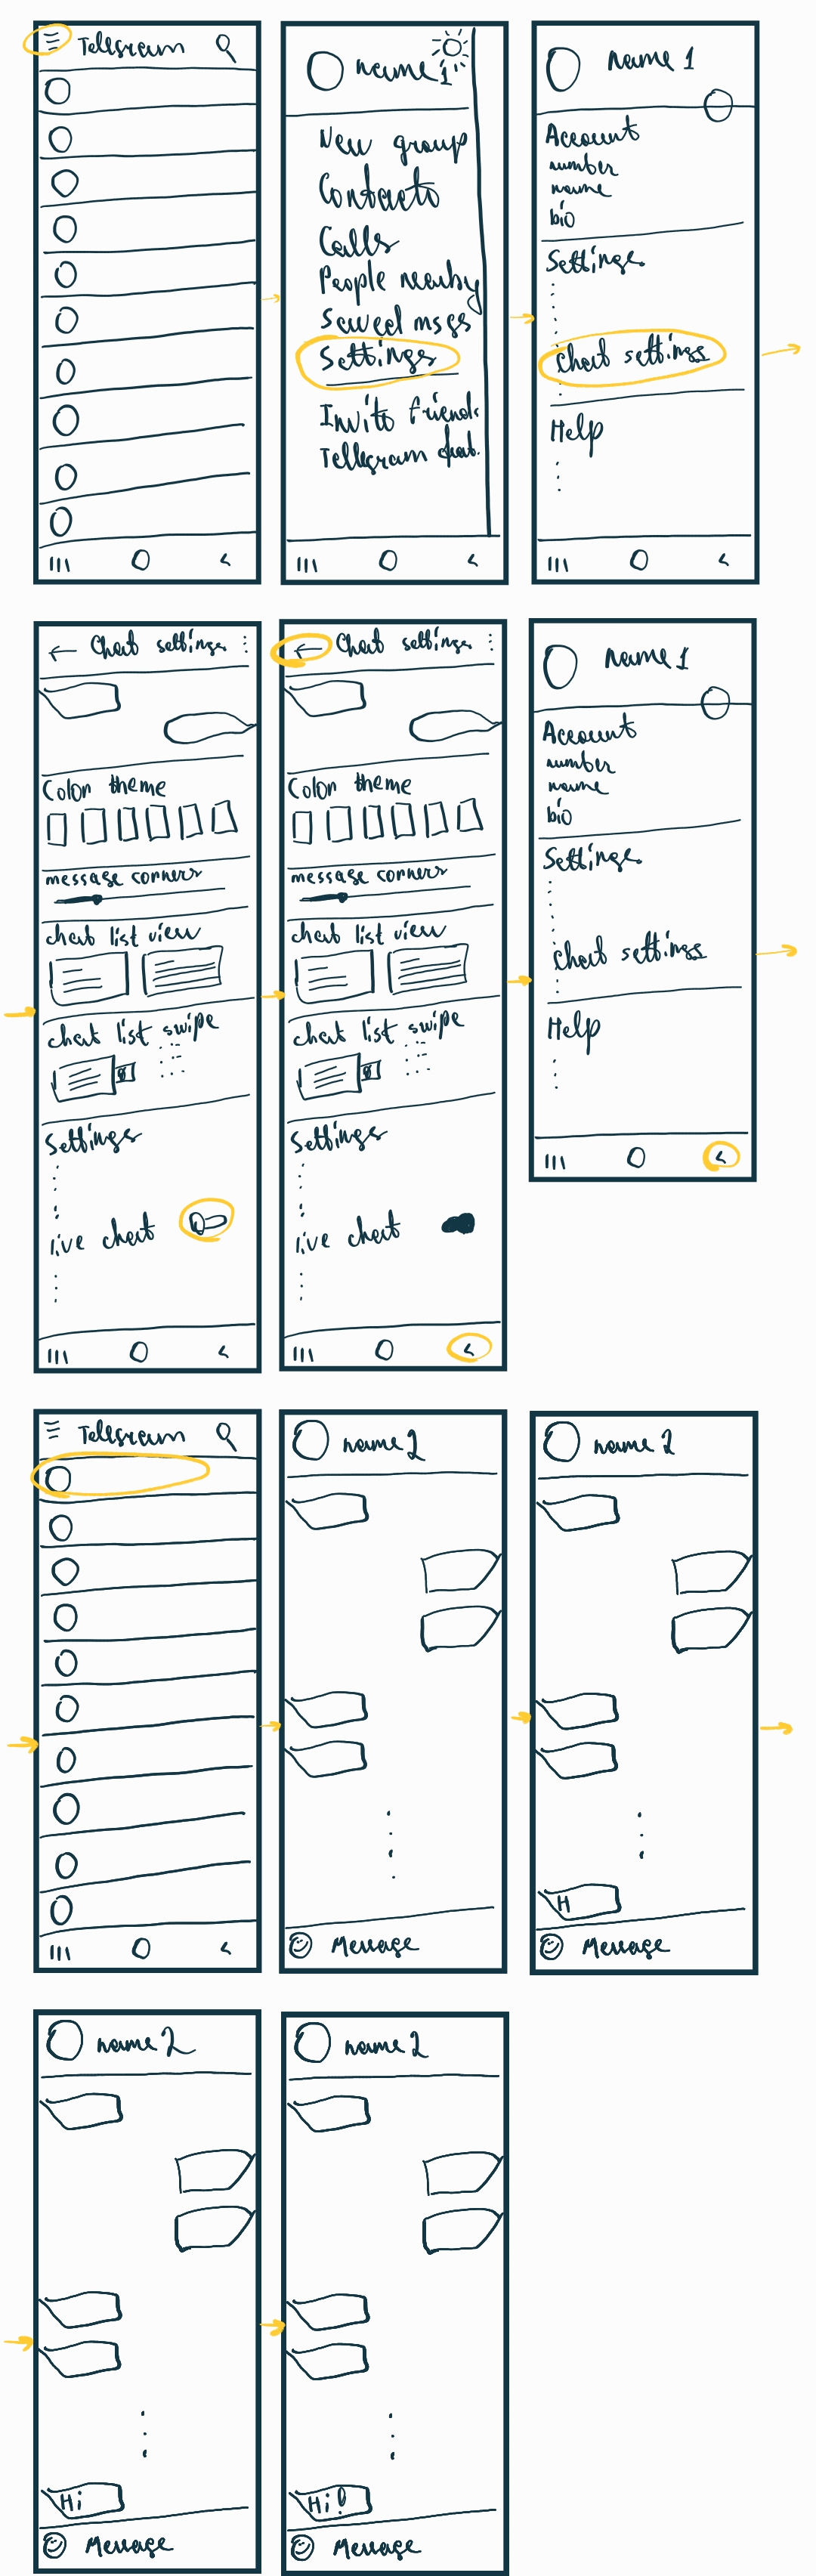 Telegram
name 1
New group
Contacts
Calls
People nearby
Saved msgs
Settings
Invite friends
Tellegram chat.
name 1
Account
number
name
bio
Settings
Chat settings
Help
Chat settings
Color theme
message corners
chat list view
chat list swipe
Settings
live chat
Chat settings
Color theme
message corners
chat list view
chat list swipe
Settings
live chat
name 1
Account
number
name
bio
Settings
Chat settings
Help
Telegram
name 2
Message
name 2
H
Message
name 2
Hi
Message
name 2
Hi!
Message